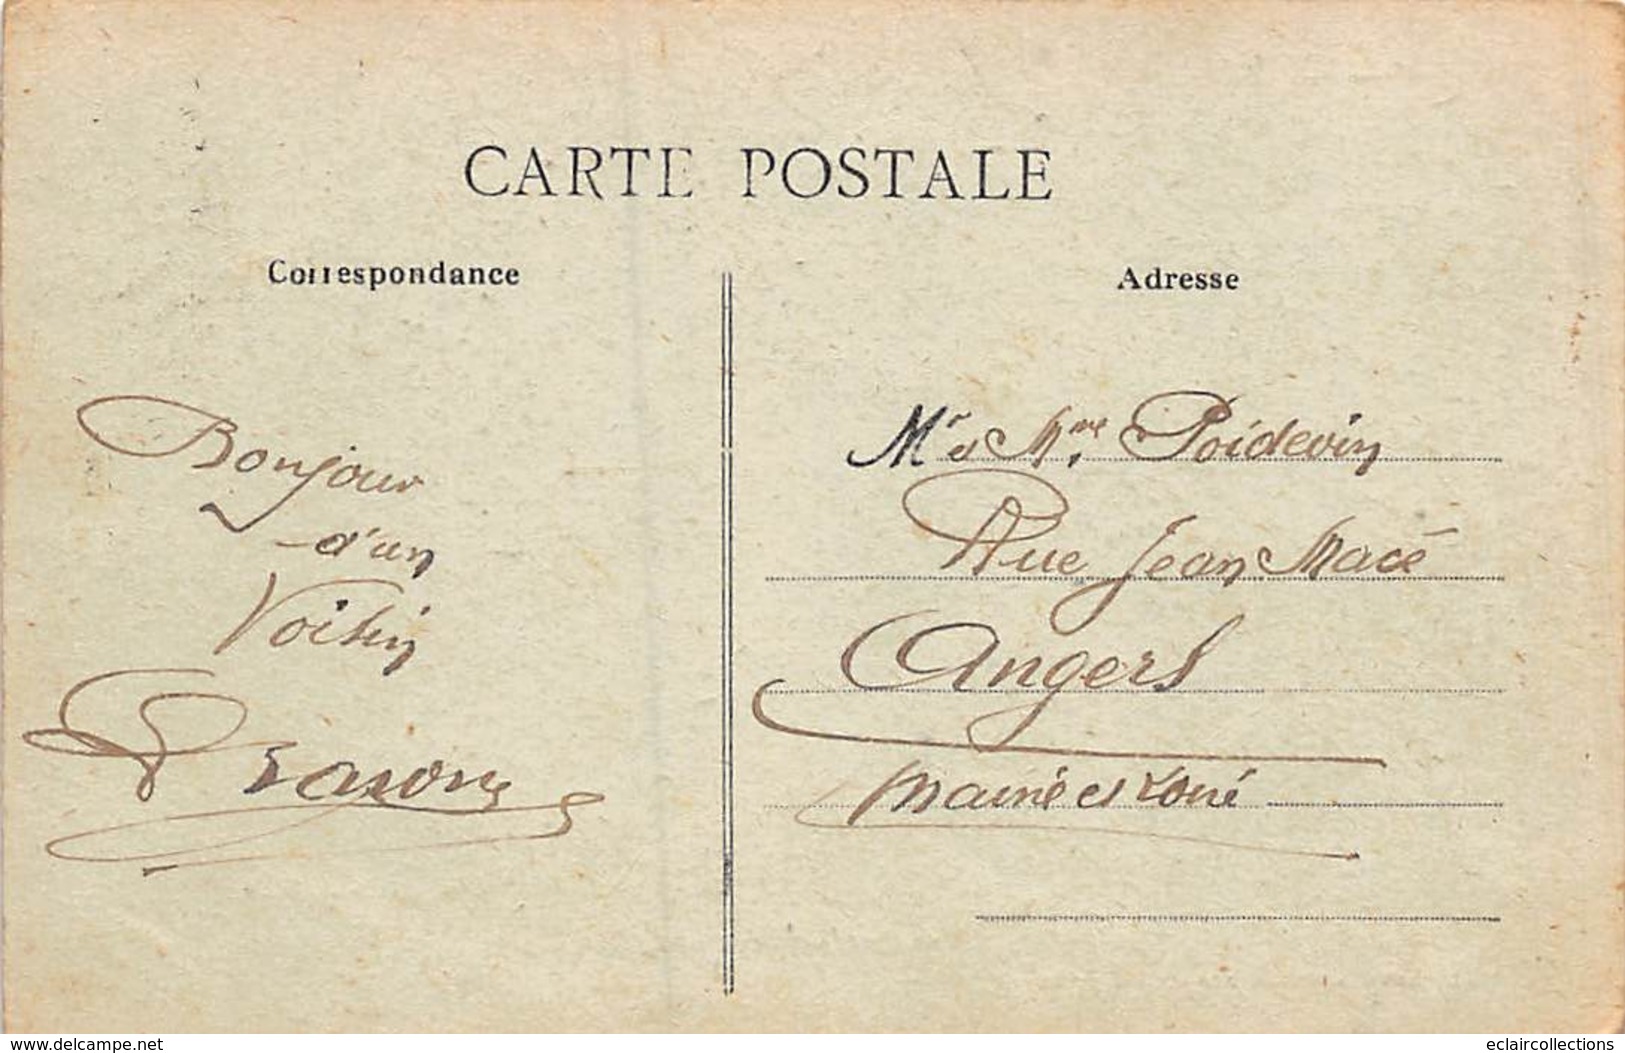 CARTE POSTALE
Correspondance
Adresse
Bonjour
d'un
Voisin
Mr & Mme Poidevin
Rue Jean Macé
Angers
Maine et Loire
www.delcampe.net
eclaircollections